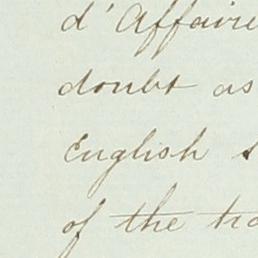 d'Affaire
doubt as
English
of the